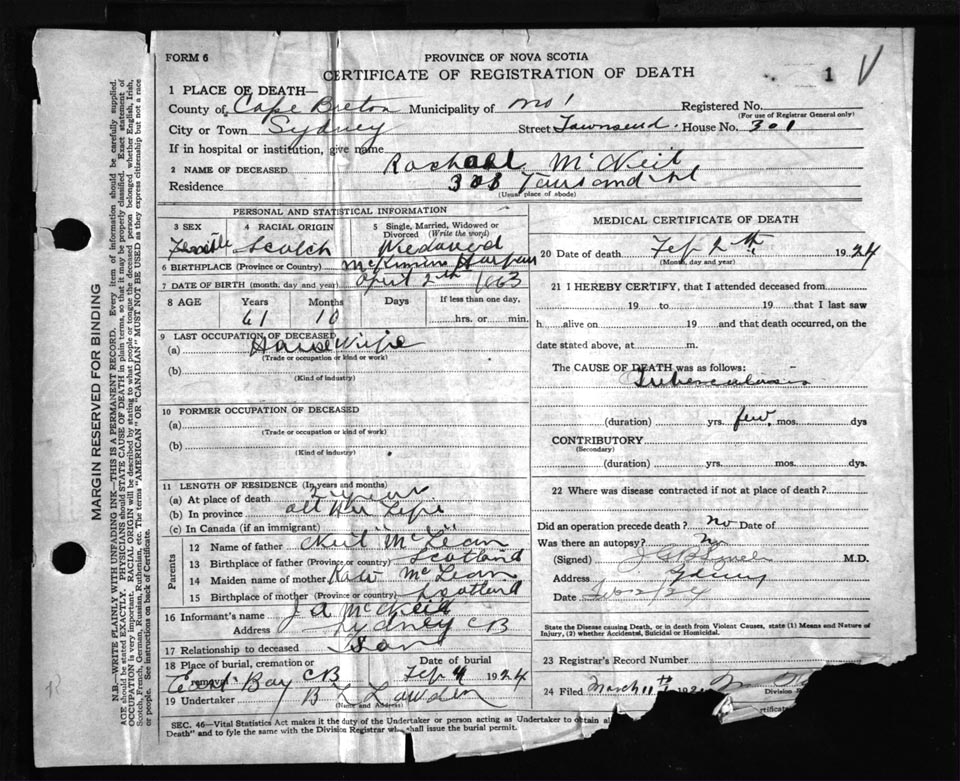 FORM 6
PROVINCE OF NOVA SCOTIA
CERTIFICATE OF REGISTRATION OF DEATH
1 V
1 PLACE OF DEATH—
County of Cape Breton Municipality of No 1 Registered No.
(For use of Registrar General only)
City or Town Sydney Street Townsend. House No. 301
If in hospital or institution, give name
2 NAME OF DECEASED Rachael McNeil
Residence 308 Townsend St
(Usual place of abode)
PERSONAL AND STATISTICAL INFORMATION
3 SEX 4 RACIAL ORIGIN 5 Single, Married, Widowed or Divorced (Write the word)
Female Scotch
6 BIRTHPLACE (Province or Country) McKinnons Harbour
7 DATE OF BIRTH (month, day and year) April 2th 1863
8 AGE Years Months Days If less than one day,
61 10 hrs. or min.
9 LAST OCCUPATION OF DECEASED
(a) House Wife
(Trade or occupation or kind of work)
(b)
(Kind of industry)
10 FORMER OCCUPATION OF DECEASED
(a)
(Trade or occupation or kind of work)
(b)
(Kind of industry)
11 LENGTH OF RESIDENCE (In years and months)
(a) At place of death years
(b) In province all Her Life
(c) In Canada (if an immigrant)
Parents
12 Name of father Neil McLean
13 Birthplace of father (Province or country) Scotland
14 Maiden name of mother Kate McLean
15 Birthplace of mother (Province or country) Scotland
16 Informant's name J A McNeil
Address Sydney CB
17 Relationship to deceased Son
18 Place of burial, cremation or removal Date of burial
East Bay CB Feb 4 1924
19 Undertaker
(Name and Address)
MEDICAL CERTIFICATE OF DEATH
20 Date of death Feb 2th 1924
(Month, day and year)
21 I HEREBY CERTIFY, that I attended deceased from
19 to 19 that I last saw
h alive on 19 and that death occurred, on the
date stated above, at m.
The CAUSE OF DEATH was as follows:
Tuberculosis
(duration) yrs. few mos. dys
CONTRIBUTORY
(Secondary)
(duration) yrs. mos. dys.
22 Where was disease contracted if not at place of death?
Did an operation precede death? No Date of
Was there an autopsy? No
(Signed) M.D.
Address Sydney
Date Feb 2/24
State the Disease causing Death, or in death from Violent Causes, state (1) Means and Nature of
Injury, (2) whether Accidental, Suicidal or Homicidal.
23 Registrar's Record Number
24 Filed March 11th 192
Division
SEC. 46—Vital Statistics Act makes it the duty of the Undertaker or person acting as Undertaker to obtain al
Death" and to fyle the same with the Division Registrar wh shall issue the burial permit.
MARGIN RESERVED FOR BINDING
N.B.—WRITE PLAINLY WITH UNFADING INK—THIS IS A PERMANENT RECORD. Every item of information should be carefully supplied.
AGE should be stated EXACTLY. PHYSICIANS should STATE CAUSE OF DEATH in plain terms, so that it may be properly classified. Exact statement of
OCCUPATION is very important. RACIAL ORIGIN will be described by stating to what people or tongue the deceased person belonged whether English, Irish,
Scotch, French, German, Russian, Ruthenian, etc. The terms "AMERICAN" OR "CANADIAN" MUST NOT BE USED as they express citizenship but not a race
or people. See instructions on back of Certificate.